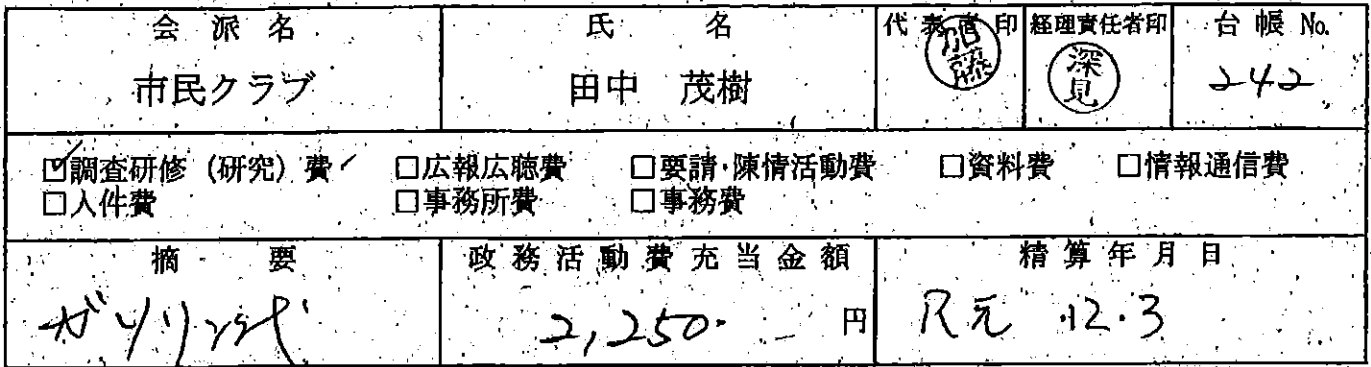 会派名 氏名 代表者印 経理責任者印 台帳 No.
市民クラブ 田中 茂樹 加藤 深見 242
☑調査研修(研究)費 □広報広聴費 □要請・陳情活動費 □資料費 □情報通信費
□人件費 □事務所費 □事務費
摘要 政務活動費充当金額 精算年月日
ガソリン代 2,250 円 R元.12.3